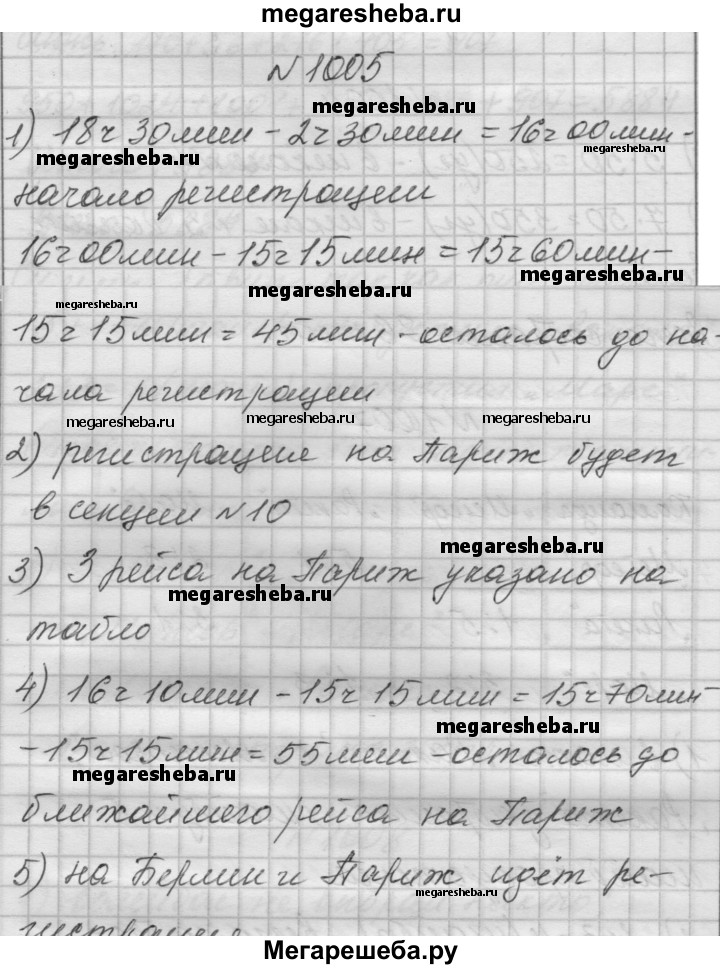 megaresheba.ru
N 1005
megaresheba.ru
1) 18ч 30мин - 2ч 30мин = 16ч 00мин -
megaresheba.ru
megaresheba.ru
начало регистрации
16ч 00мин - 15ч 15мин = 15ч 60мин -
megaresheba.ru
megaresheba.ru
megaresheba.ru
15ч 15мин = 45мин - осталось до на-
чала регистрации
megaresheba.ru
megaresheba.ru
megaresheba.ru
2) регистрация на Париж будет
в секции N 10
megaresheba.ru
3) 3 рейса на Париж указано на
megaresheba.ru
табло
4) 16ч 10мин - 15ч 15мин = 15ч 70мин -
megaresheba.ru
- 15ч 15мин = 55мин - осталось до
megaresheba.ru
ближайшего рейса на Париж
5) на Берлин и Париж идёт ре-
megaresheba.ru
гистрация
Мегарешеба.ру